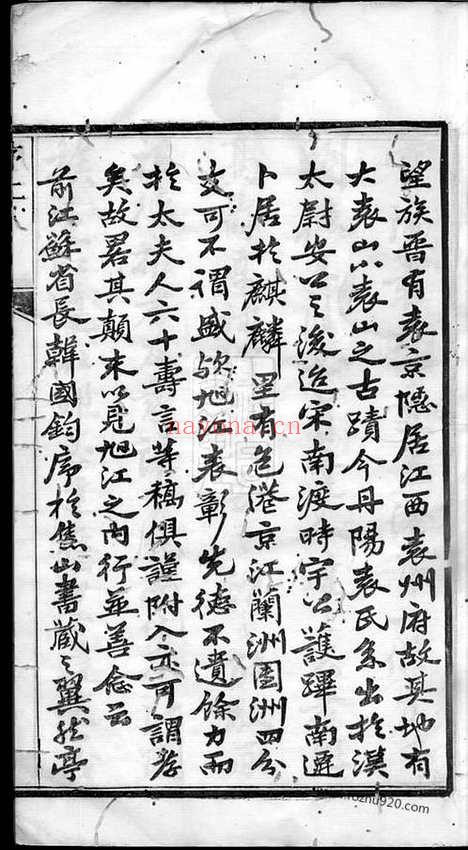 望族晋有袁京隱居江西袁州府故其地有
大袁山小袁山之古蹟今丹陽袁氏系出於漢
太尉安公之後迨宋南渡時宇公護蹕南遷
卜居於麒麟 里有包港京江蘭洲圍洲四分
支可不謂盛歟旭江表彰先德不遺餘力而
於太夫人六十壽言等稿俱謹附入亦可謂孝
矣故畧其顛末以見旭江之內行並善念云
前江蘇省長韓國鈞序於焦山書藏之翼然亭
nayuna.cn